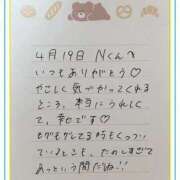 4月19日 Nくんへ
いつもありがとう♡
やさしく気づかってくれる
ところ、本当にうれしく
て、幸せです♡
もぐもぐしてる時もくっつい
ているときも、たのしすぎて
あっという間だね!!